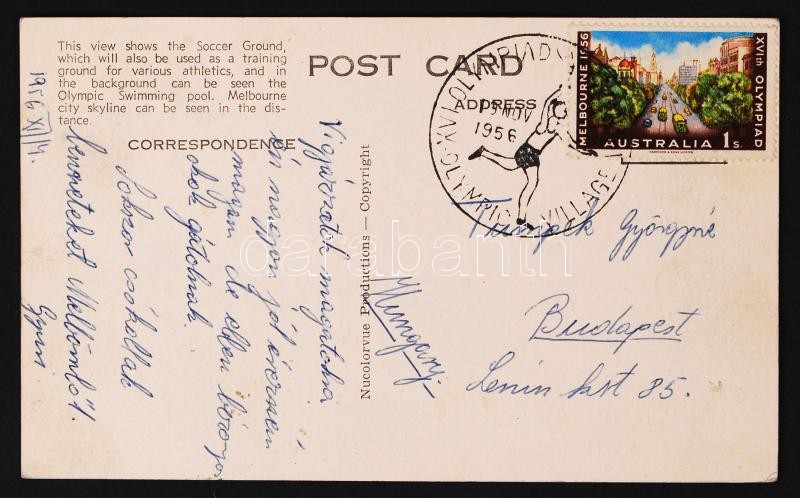 This view shows the Soccer Ground,
which will also be used as a training
ground for various athletics, and in
the background can be seen the
Olympic Swimming pool. Melbourne
city skyline can be seen in the dis-
tance.
POST CARD
CORRESPONDENCE
ADDRESS
XVI OLYMPIAD
19 NOV
1956
OLYMPIC VILLAGE
MELBOURNE 1956
XVIth OLYMPIAD
AUSTRALIA 1s.
Nucolorvue Productions — Copyright
1956 XI/14.
Vigyázzatok magatokra
én nagyon jól érezném
magam de
gátolnak.
Sokszor csókollak
benneteket Melbörnből.
Gyuri
György né
Budapest
Lenin krt 85.
Hungary
darabanth